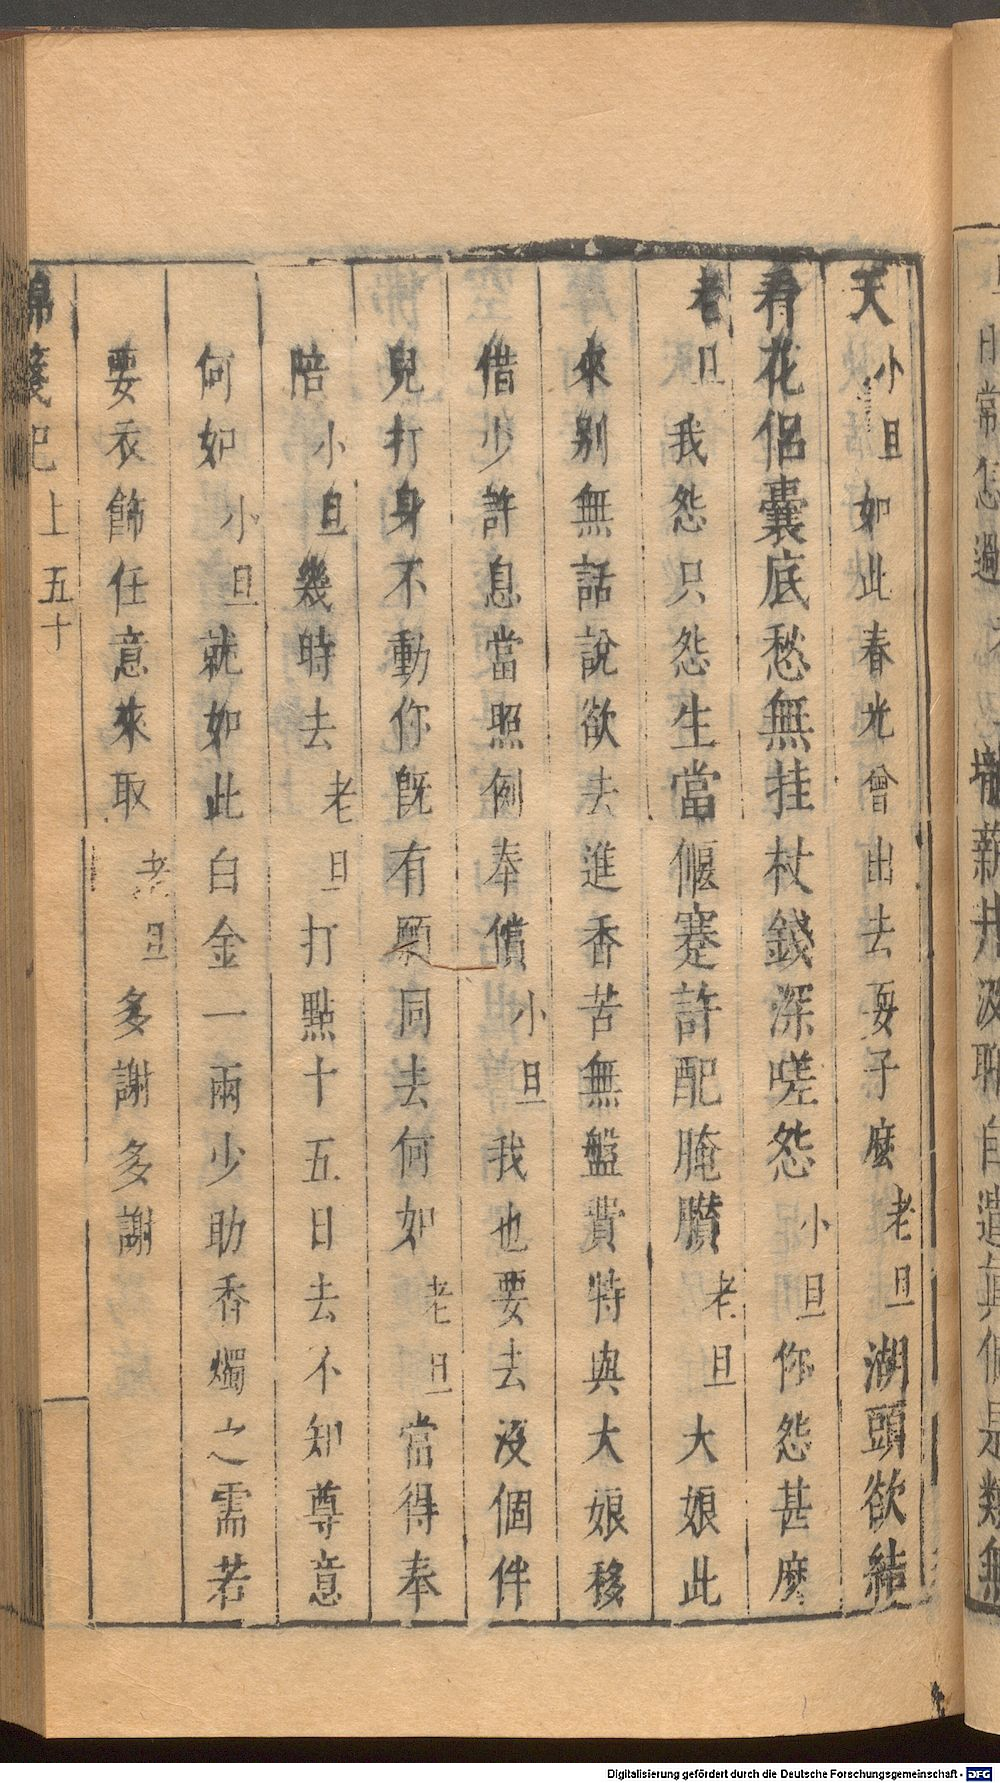 天小旦如此春光曾出去耍子麽老旦湖頭欲結
看花侶囊底愁無挂杖錢深嗟怨小旦你怨甚麽
老旦我怨只怨生當偃蹇許配腌臢老旦大娘此
來别無話說欲去進香苦無盤費特與大娘移
借少許息當照例奉償小旦我也要去没個伴
兒打身不動你旣有願同去何如老旦當得奉
陪小旦幾時去老旦打點十五日去不知尊意
何如小旦就如此白金一兩少助香燭之需若
要衣飾任意來取老旦多謝多謝
錦箋記上五十
Digitalisierung gefördert durch die Deutsche Forschungsgemeinschaft - DFG